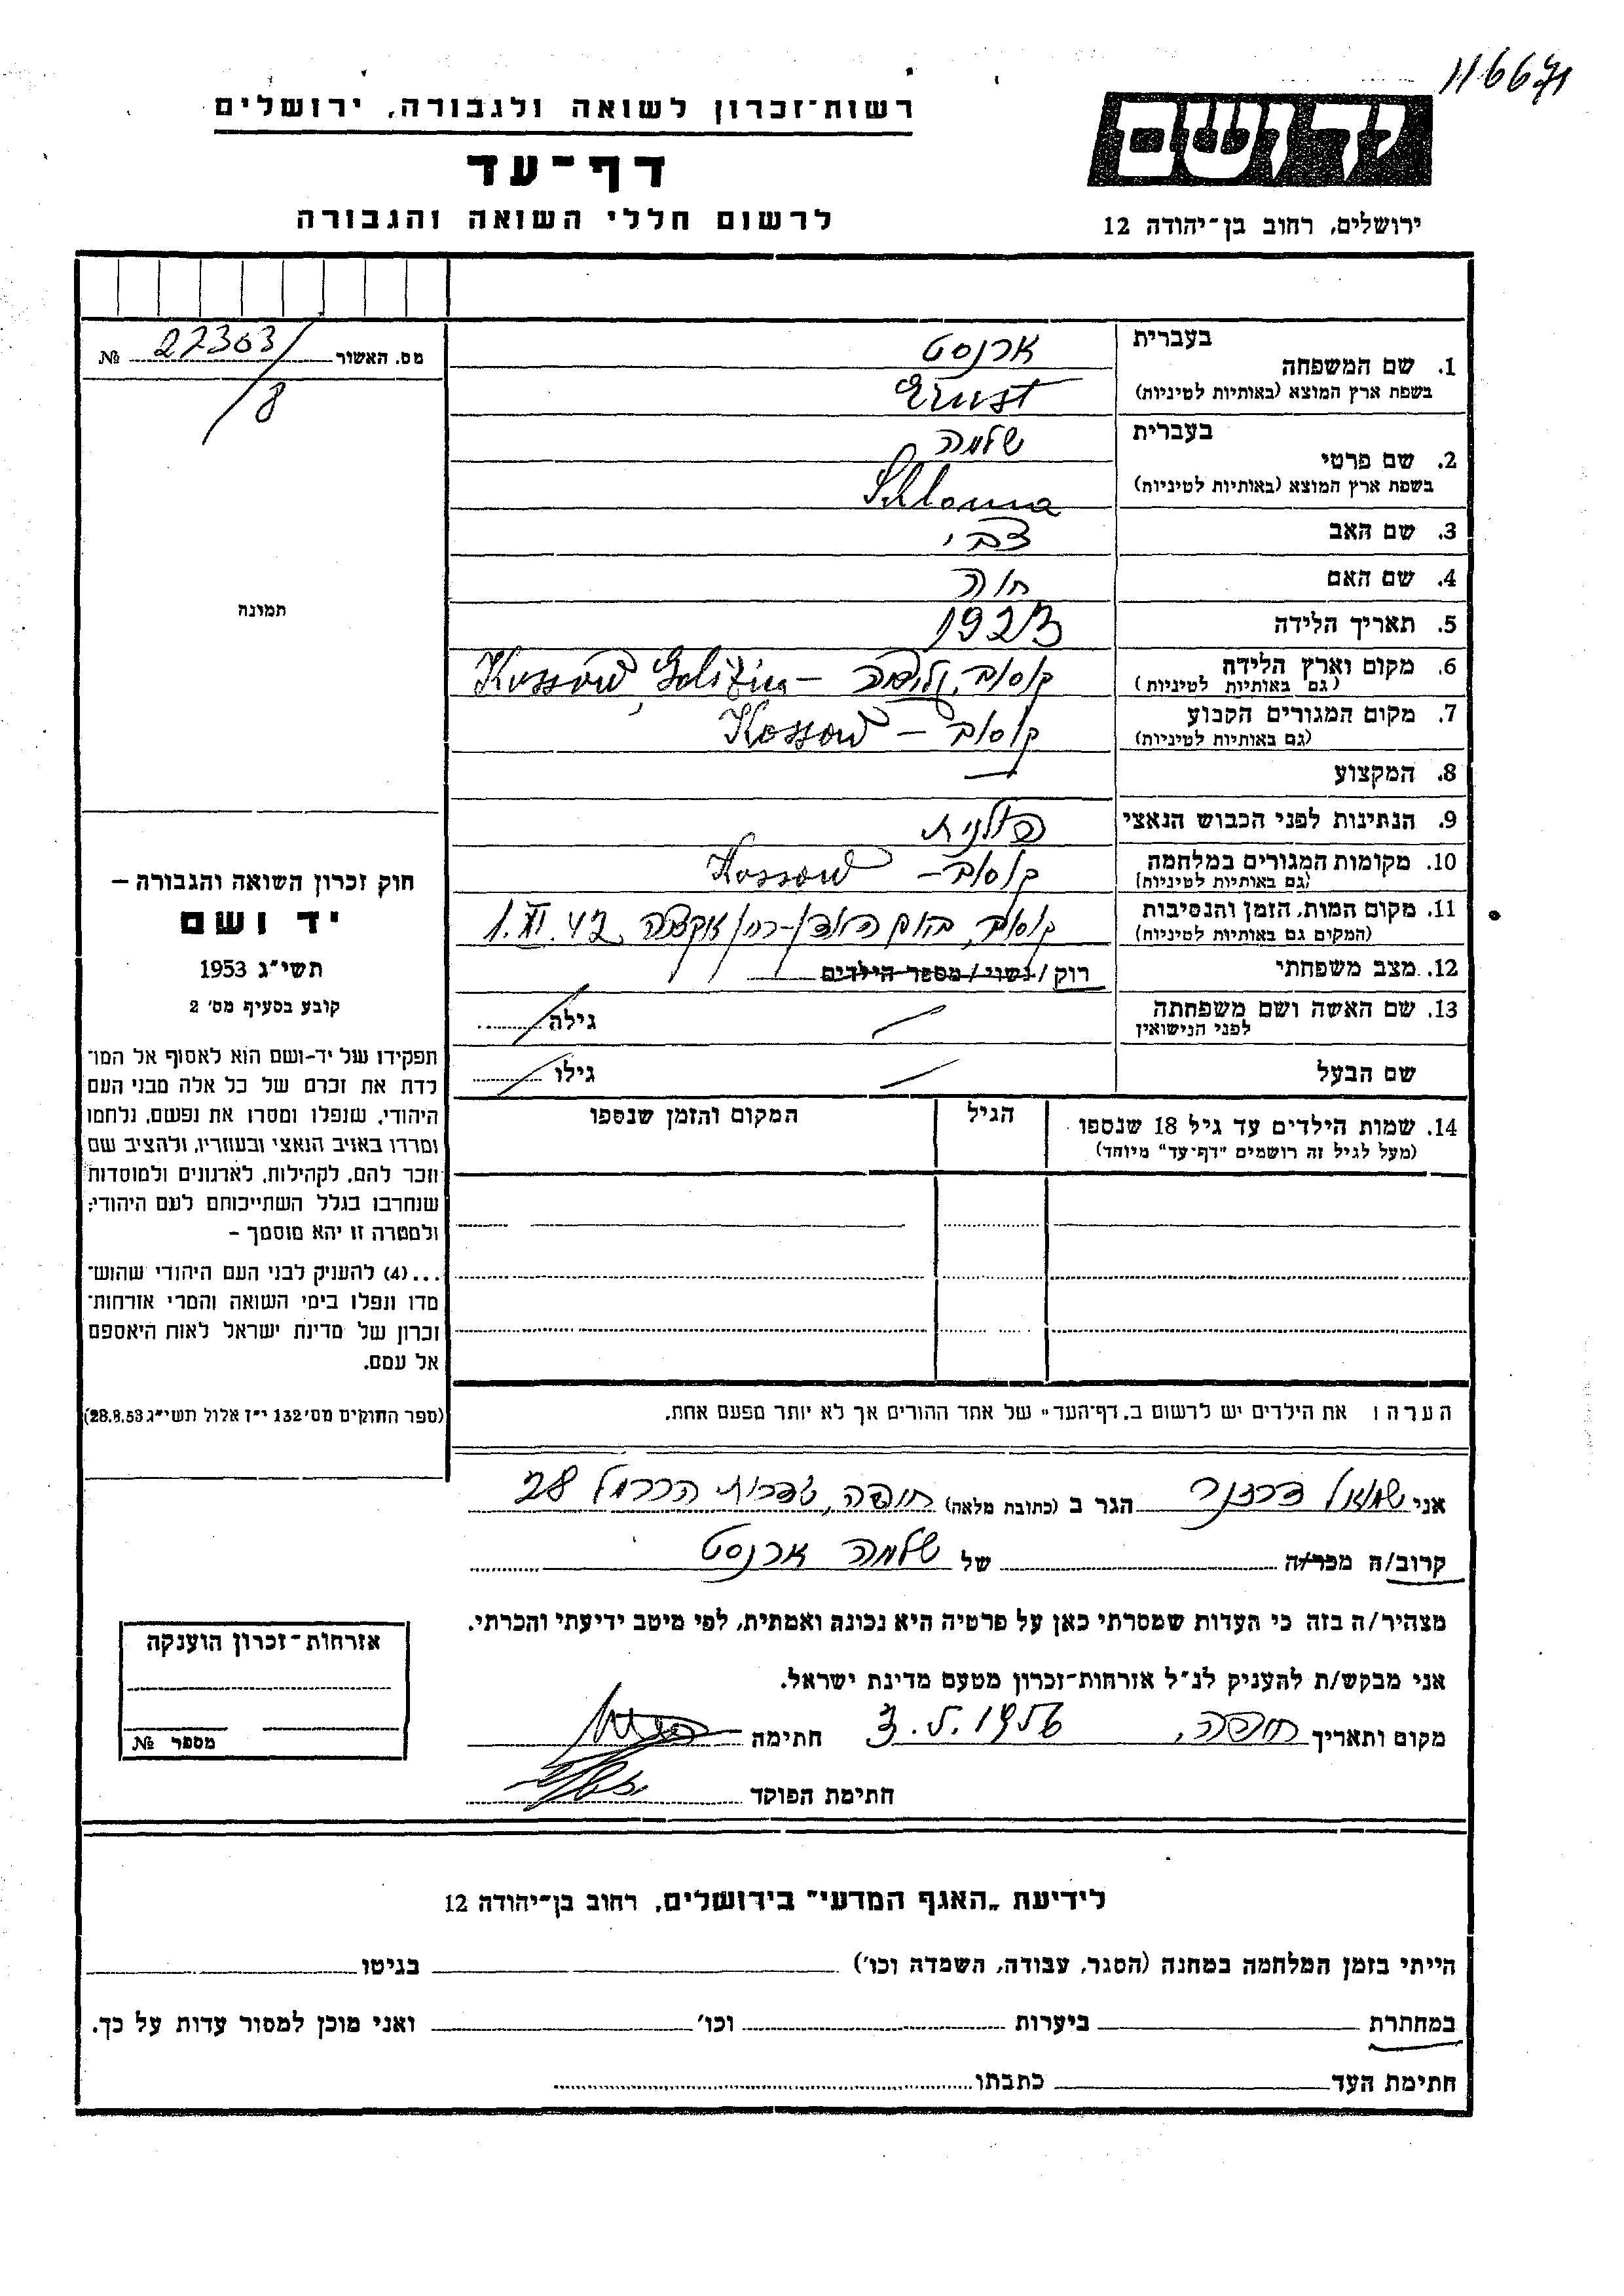 116671
רשות־זכרון לשואה ולגבורה, ירושלים
דף־עד
לרשום חללי השואה והגבורה
יד ושם
ירושלים, רחוב בן־יהודה 12
מס. האשור 27303/8 №
תמונה
חוק זכרון השואה והגבורה –
יד ושם
תשי״ג 1953
קובע בסעיף מס׳ 2
תפקידו של יד-ושם הוא לאסוף אל המו־
לדת את זכרם של כל אלה מבני העם
היהודי, שנפלו ומסרו את נפשם, נלחמו
ומרדו באויב הנאצי ובעוזריו, ולהציב שם
וזכר להם, לקהילות, לארגונים ולמוסדות
שנחרבו בגלל השתייכותם לעם היהודי;
ולמטרה זו יהא מוסמך –
...(4) להעניק לבני העם היהודי שהוש־
מדו ונפלו בימי השואה והמרי אזרחות־
זכרון של מדינת ישראל לאות היאספם
אל עמם.
(ספר החוקים מס׳ 132 י״ז אלול תשי״ג 28.8.53)
1. שם המשפחה
בעברית ארנסט
בשפת ארץ המוצא (באותיות לטיניות) Ernst
2. שם פרטי
בעברית שלמה
בשפת ארץ המוצא (באותיות לטיניות) Schloma
3. שם האב צבי
4. שם האם חוה
5. תאריך הלידה 1923
6. מקום וארץ הלידה קוסוב, גליציה – Kossow, Galizien
(גם באותיות לטיניות)
7. מקום המגורים הקבוע קוסוב – Kossow
(גם באותיות לטיניות)
8. המקצוע –
9. הנתינות לפני הכבוש הנאצי פולנית
10. מקומות המגורים במלחמה קוסוב – Kossow
(גם באותיות לטיניות)
11. מקום המות, הזמן והנסיבות קוסוב, אקציה 1.XI.42
(המקום גם באותיות לטיניות)
12. מצב משפחתי רוק / נשוי / מספר הילדים
13. שם האשה ושם משפחתה גילה
לפני הנישואין
שם הבעל גילו
14. שמות הילדים עד גיל 18 שנספו הגיל המקום והזמן שנספו
(מעל לגיל זה רושמים ״דף־עד״ מיוחד)
הערה: את הילדים יש לרשום ב„דף־העד״ של אחד ההורים אך לא יותר מפעם אחת.
אני שמואל הגר ב (כתובת מלאה) חיפה, שדרות הכרמל 28
קרוב/ה מכר/ה של שלמה ארנסט
מצהיר/ה בזה כי העדות שמסרתי כאן על פרטיה היא נכונה ואמתית, לפי מיטב ידיעתי והכרתי.
אני מבקש/ת להעניק לנ״ל אזרחות־זכרון מטעם מדינת ישראל.
מקום ותאריך חיפה, 3.5.1956 חתימה
חתימת הפוקד
אזרחות־זכרון הוענקה
מספר №
לידיעת „האגף המדעי״ בירושלים, רחוב בן־יהודה 12
הייתי בזמן המלחמה במחנה (הסגר, עבודה, השמדה וכו׳) בגיטו
במחתרת ביערות וכו׳ ואני מוכן למסור עדות על כך.
חתימת העד כתבתו